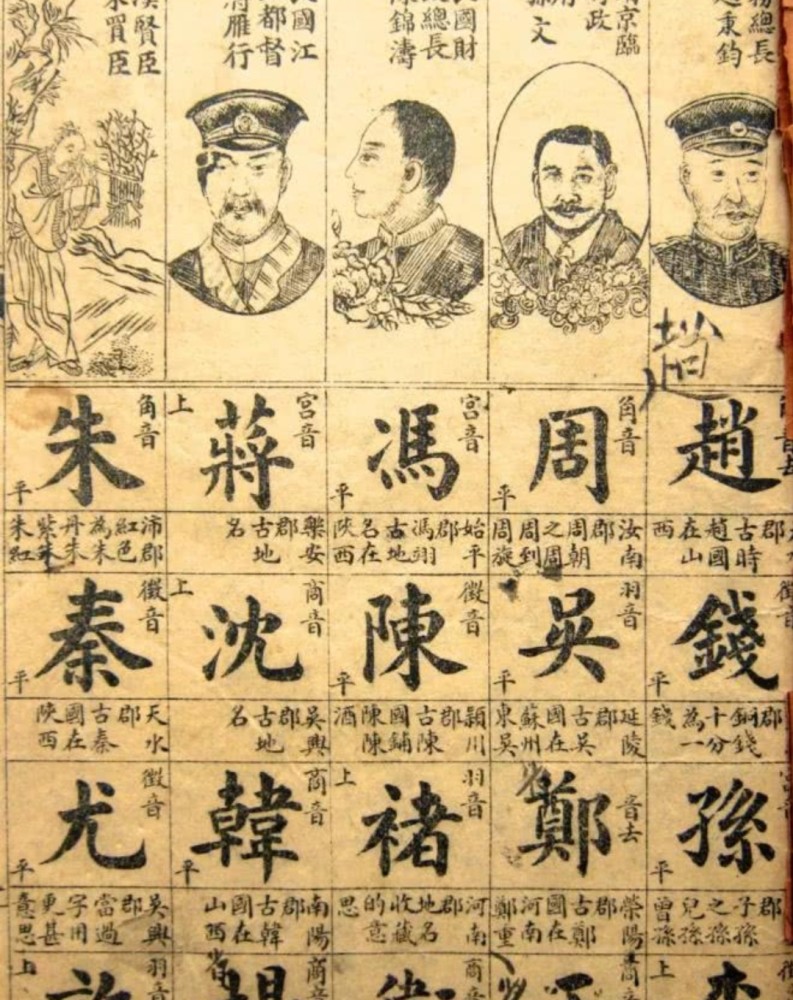 務總長
秉鈞
京臨
政
文
國財
總長
錦濤
國江
都督
雁行
賢臣
買臣
趙
趙
郡
古時
趙國
在山
西
角音
周
平
汝南
郡
周朝
之周
周到
周旋
宮音
馮
平
始平
郡
馮翊
古地
名在
陝西
宮音
蔣
上
樂安
郡
古地
名
角音
朱
平
沛郡
紅色
為朱
丹朱
紫朱
朱紅
錢
平
郡
銅錢
十分
為一
錢
羽音
吳
平
延陵
郡
古吳
國在
蘇州
東吳
徵音
陳
平
潁川
郡
古陳
國鋪
陳陳
酒
商音
沈
上
吳興
郡
古地
名
徵音
秦
平
天水
郡
古秦
國在
陝西
孫
平
郡
子孫
之孫
兒孫
曾孫
音去
鄭
榮陽
郡
古鄭
國在
河南
鄭重
羽音
褚
上
河南
郡
地名
收藏
的意
思
商音
韓
平
南陽
郡
古韓
國在
山西
省
徵音
尤
平
吳興
郡
當過
字用
更甚
意思
上
商音
商音
商音
羽音
上